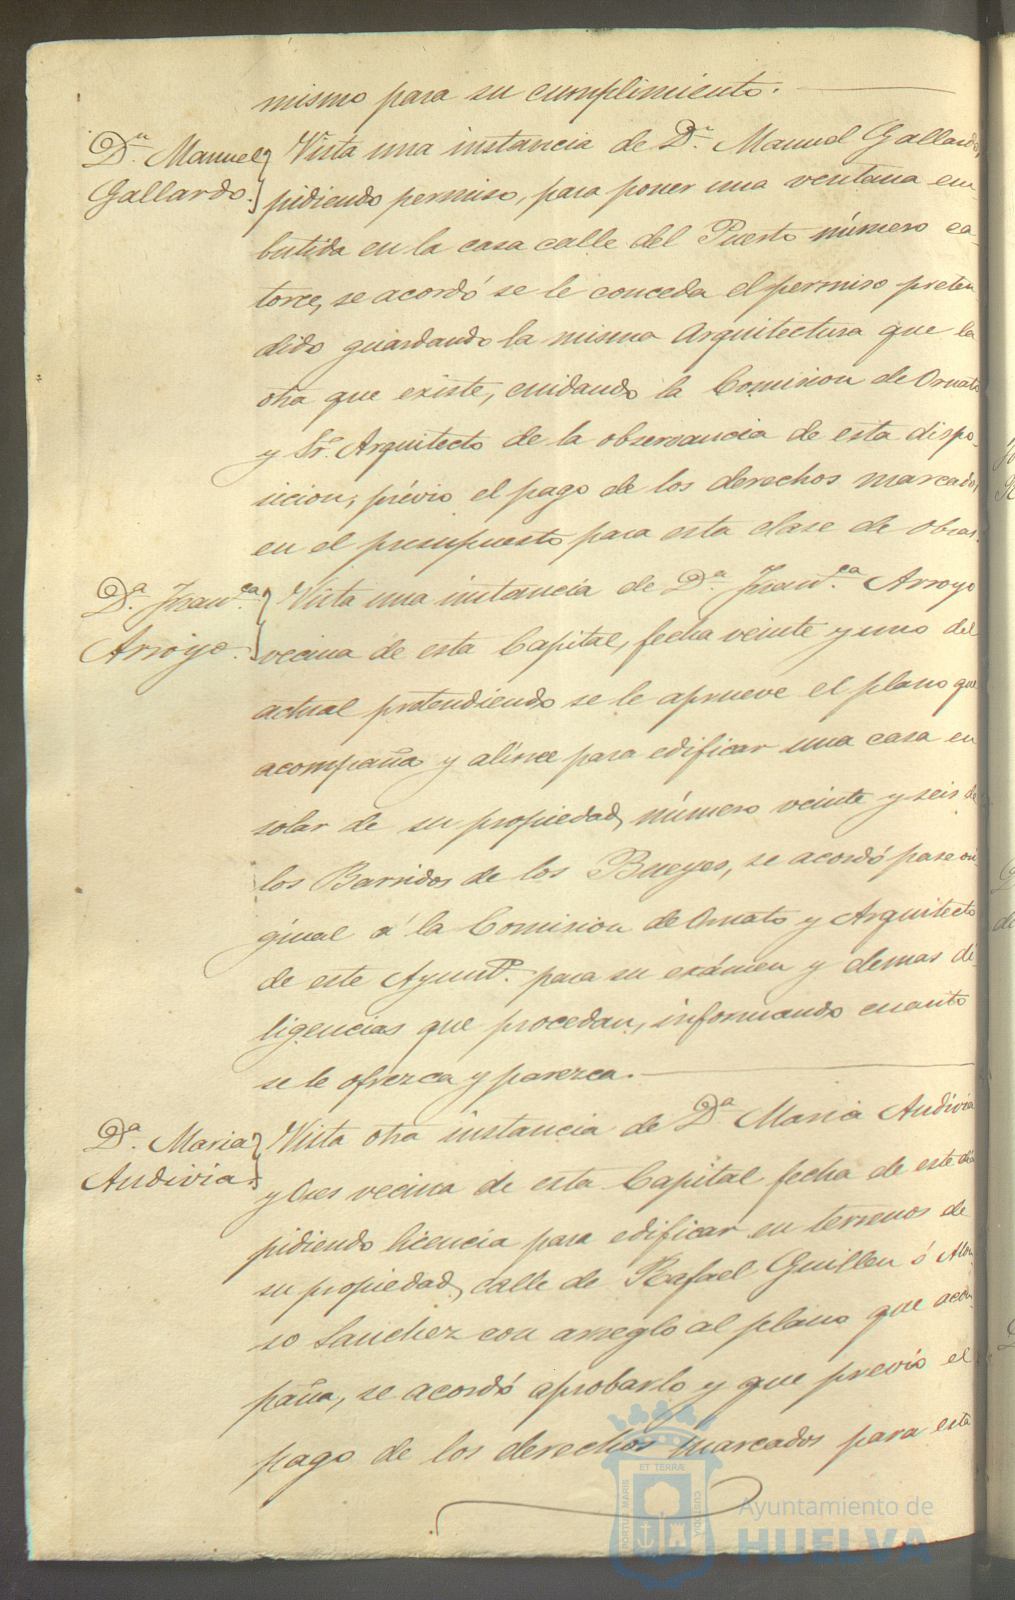 mismo para su cumplimiento.
Dn. Manuel
Gallardo.
Vista una instancia de Dn. Manuel Gallardo,
pidiendo permiso, para poner una ventana em-
butida en la casa calle del Puerto número ca-
torce, se acordó se le conceda el permiso preten
dido guardando la misma Arquitectura que la
otra que existe, cuidando la Comision de Ornato
y Sr. Arquitecto de la observancia de esta dispo-
sicion, prévio el pago de los derechos marcados
en el presupuesto para esta clase de obras.
Da. Franca.
Arroyo.
Vista una instancia de Da. Franca. Arroyo
vecina de esta Capital, fecha veinte y uno del
actual pretendiendo se le aprueve el plano que
acompaña y alinee para edificar una casa en
solar de su propiedad, número veinte y seis de
los Barridos de los Bueyes, se acordó pase ori
ginal á la Comision de Ornato y Arquitecto
de este Ayunto. para su exámen y demas di-
ligencias que procedan, informando cuanto
se le ofrezca y parezca.
Da. Maria
Andivia.
Vista otra instancia de Da. Maria Andivia
y vecina de esta Capital fecha de este dia
pidiendo licencia para edificar en terrenos de
su propiedad, calle de Rafael Guillen ó Alon
so Sanchez con arreglo al plano que acom
paña, se acordó aprobarlo y que previo el
pago de los derechos marcados para esta
PORTUS MARIS
ET TERRÆ
CUSTODIA
Ayuntamiento de
HUELVA